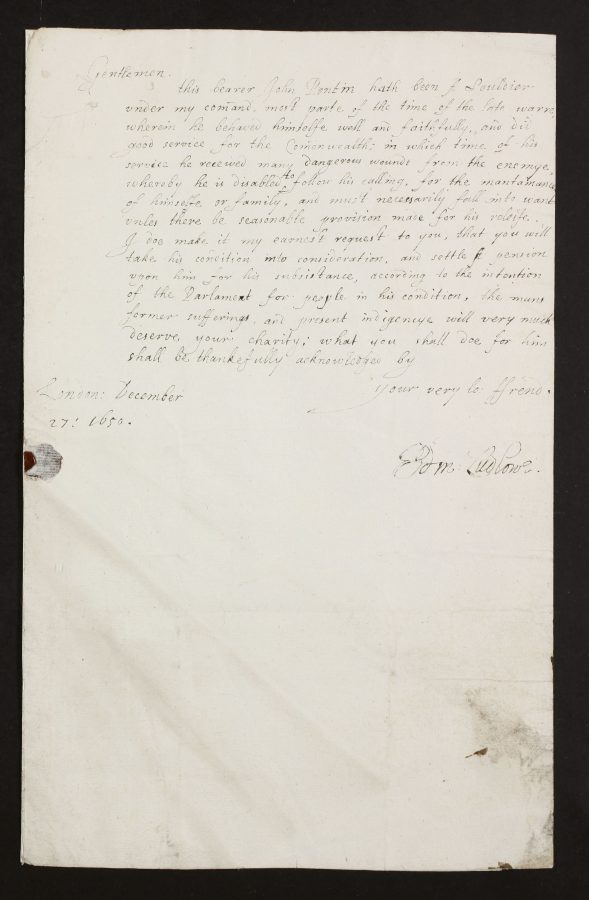 Gentlemen.
this bearer John Pontin hath been A Souldior
vnder my comand, most parte of the time of the late warre,
wherein he behaved himselfe well and faithfully, and did
good service for the Comonwealth: in which time of his
service he receiued many dangerous wounds from the enemye,
whereby he is disabled to follow his calling, for the maintainance
of himselfe or family, and must necessarily fall into want
vnles there be seasonable provision made for his releife.
I doe make it my earnest request to you, that you will
take his condition into consideration, and settle A pension
vpon him for his subsistance, according to the intention
of the Parlament for people in his condition, the mans
former sufferings, and present indigencye will very much
deserve your charity; what you shall doe for him
shall be thankefully acknowledged by
London: December your very lo: ffrend.
27: 1650.
Edm: Ludlowe.